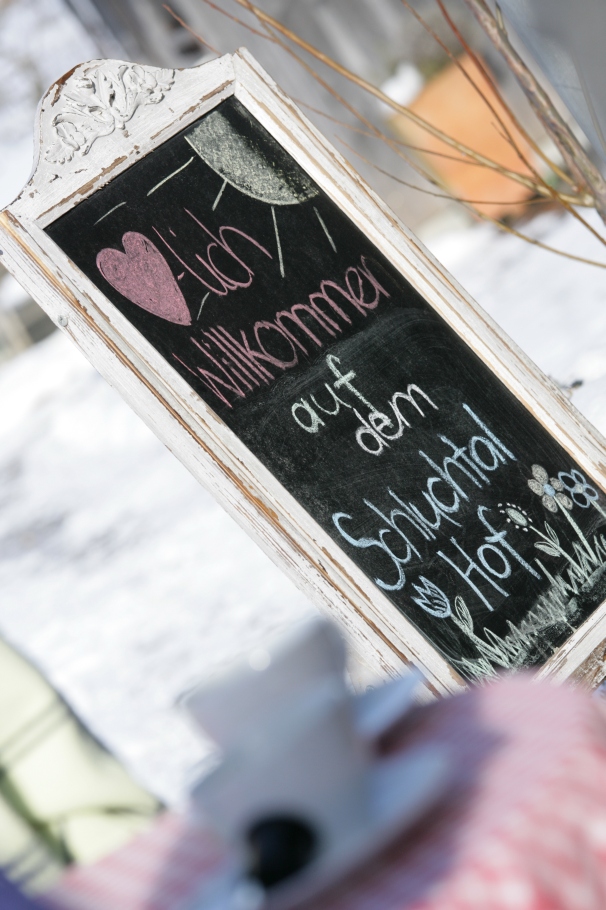 ♥-lich
Willkommen
auf
dem
Schluchtal
Hof